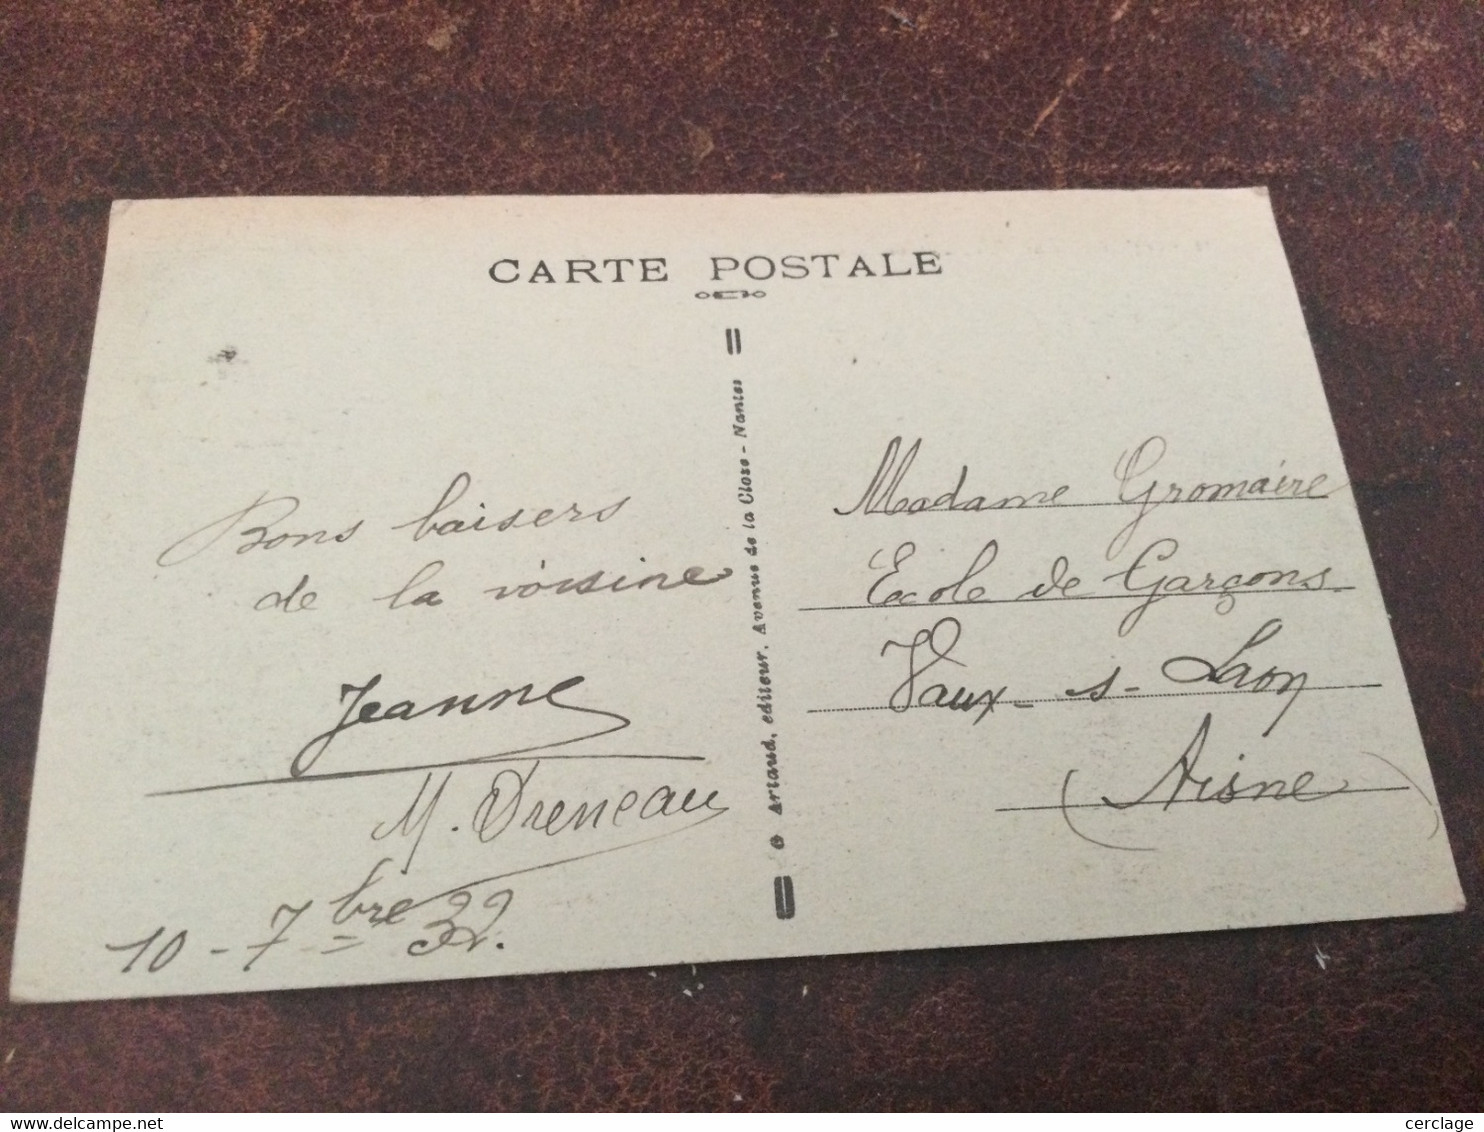 CARTE POSTALE
Bons baisers
de la voisine
Jeanne
M. Dreneau
10 - 7bre 32.
Artaud, editeur, Avenue de la Close - Nantes
Madame Gromaire
Ecole de Garçons
Vaux - s - Laon
(Aisne)
www.delcampe.net
cerclage